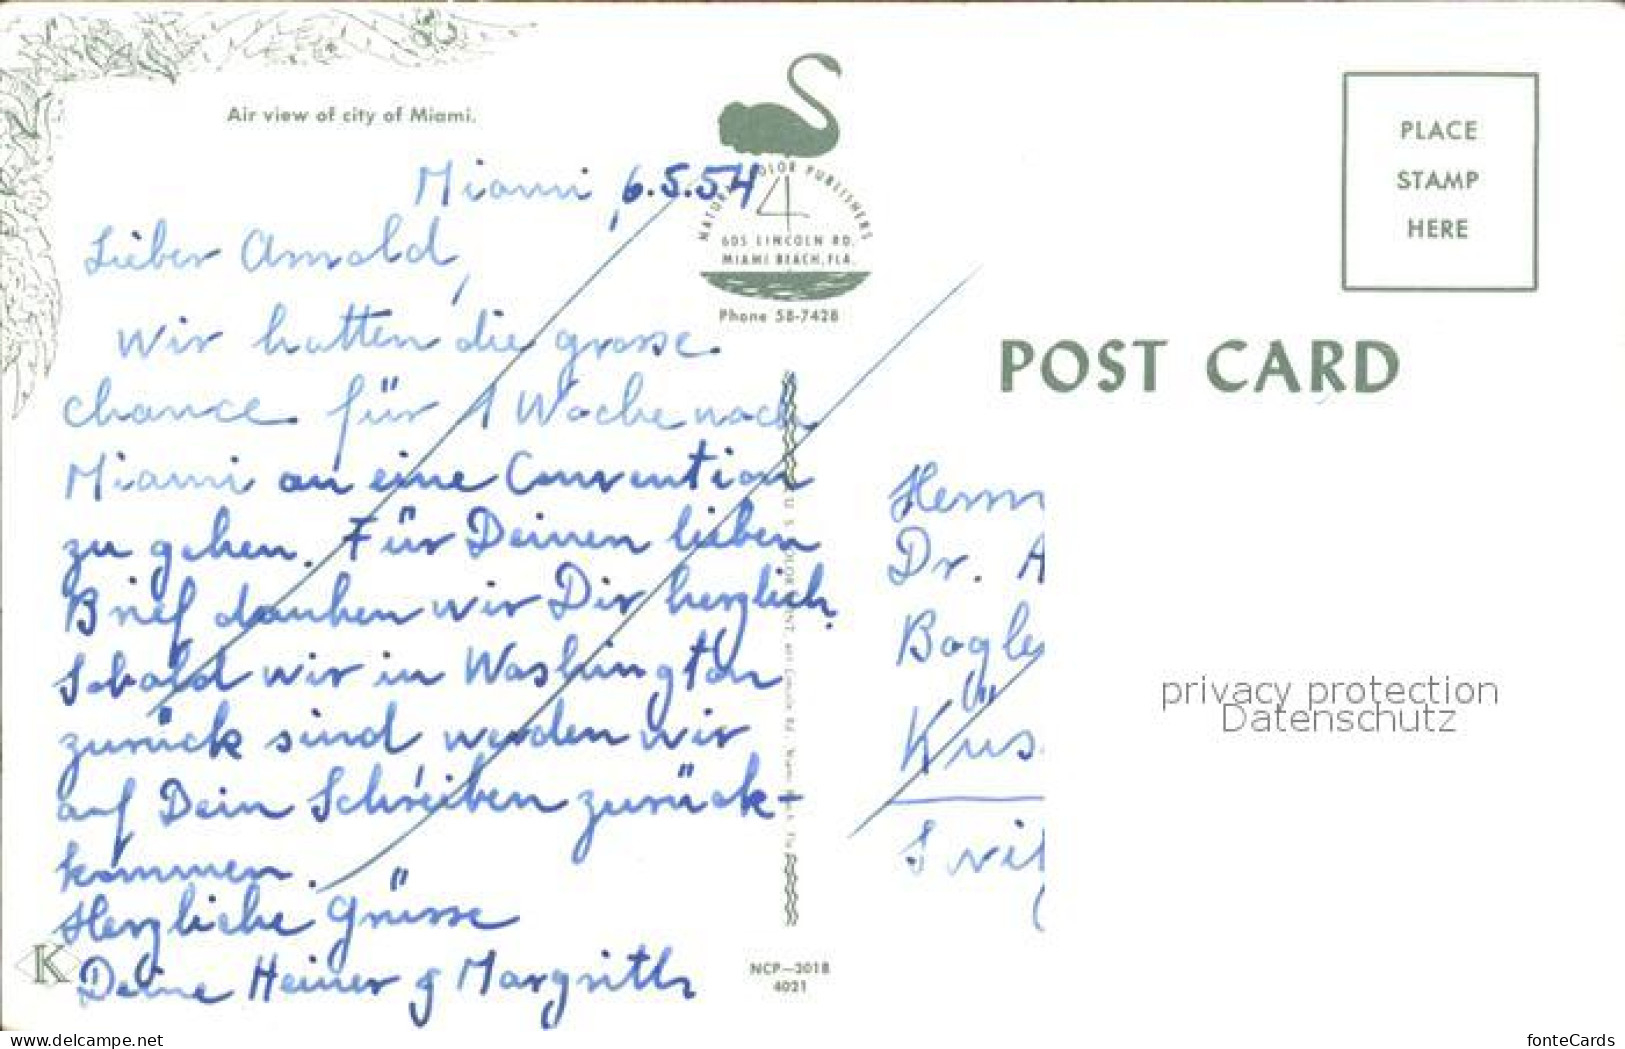 Air view of city of Miami.
NATURAL COLOR PUBLISHERS
605 LINCOLN RD.
MIAMI BEACH, FLA.
Phone 58-7428
Miami, 6.5.54
4
Lieber Arnold,
Wir hatten die grosse
chance für 1 Woche nach
Miami an eine Convention
zu gehen. Für Deinen lieben
Brief danken wir Dir herzlich.
Sobald wir in Washington
zurück sind werden wir
auf Dein Schreiben zurück-
kommen.
Herzliche Grüsse
Deine Heiner & Margrith
K
NCP-3018
4021
PLACE
STAMP
HERE
POST CARD
Herrn
Dr. A
Küs
privacy protection
Datenschutz
www.delcampe.net
fonteCards